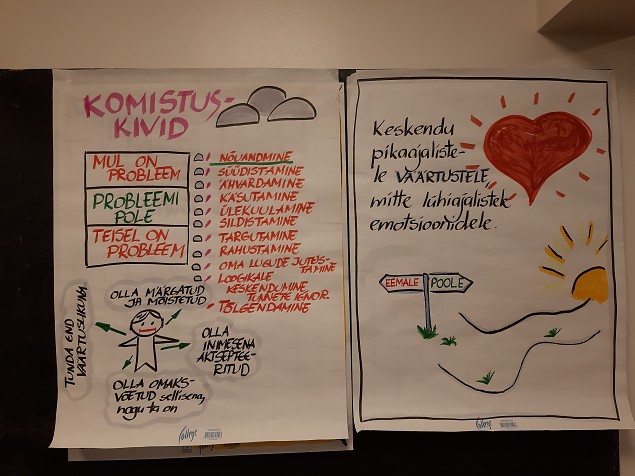 KOMISTUS-
KIVID
MUL ON
PROBLEEM
PROBLEEMI
POLE
TEISEL ON
PROBLEEM
NÕUANDMINE
SÜÜDISTAMINE
ÄHVARDAMINE
KÄSUTAMINE
ÜLEKUULAMINE
SILDISTAMINE
TARGUTAMINE
RAHUSTAMINE
OMA LUGUDE JUTUS-
TAMINE
LOOGIKALE
KESKENDUMINE,
TUNNETE IGNOR.
TÕLGENDAMINE
OLLA MÄRGATUD
JA MÕISTETUD
TUNDA END
VÄÄRTUSLIKUNA
OLLA
INIMESENA
AKTSEPTEE-
RITUD
OLLA OMAKS-
VÕETUD sellisena,
nagu ta on
Keskendu
pikaajaliste-
le VÄÄRTUSTELE,
mitte lühiajalistele
emotsioonidele.
EEMALE POOLE